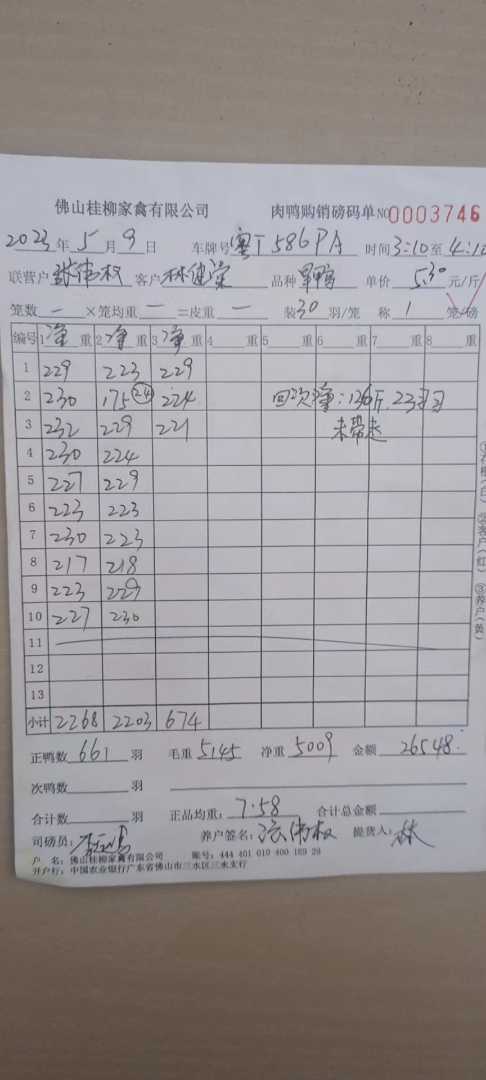 佛山桂柳家禽有限公司 肉鸭购销磅码单 NO 0003746
2023年5月9日 车牌号 粤T586PA 时间 3:10至4:10
联营户 张伟权 客户 林健棠 品种 旱鸭 单价 5.30 元/斤
笼数 — ×笼均重 — =皮重 — 装30羽/笼 称 1 笼/磅
编号 1净重 2净重 3净重 4 重 5 重 6 重 7 重 8 重
1 229 223 229
2 230 175 (24) 224 回次净:136斤.23羽
3 232 229 221 未带走
4 230 224
5 227 229
6 223 223
7 230 223
8 217 218
9 223 229
10 227 230
11
12
13
小计 2268 2203 674
正鸭数 661 羽 毛重 5145 净重 5009 金额 26548.
次鸭数 羽
合计数 羽 正品均重: 7.58 合计总金额
司磅员: 养户签名: 张伟权 提货人: 林
户 名: 佛山桂柳家禽有限公司 账号: 444 401 010 400 189 29
开户行: 中国农业银行广东省佛山市三水区三水支行
①存根(白) ②客户(红) ③养户(黄)